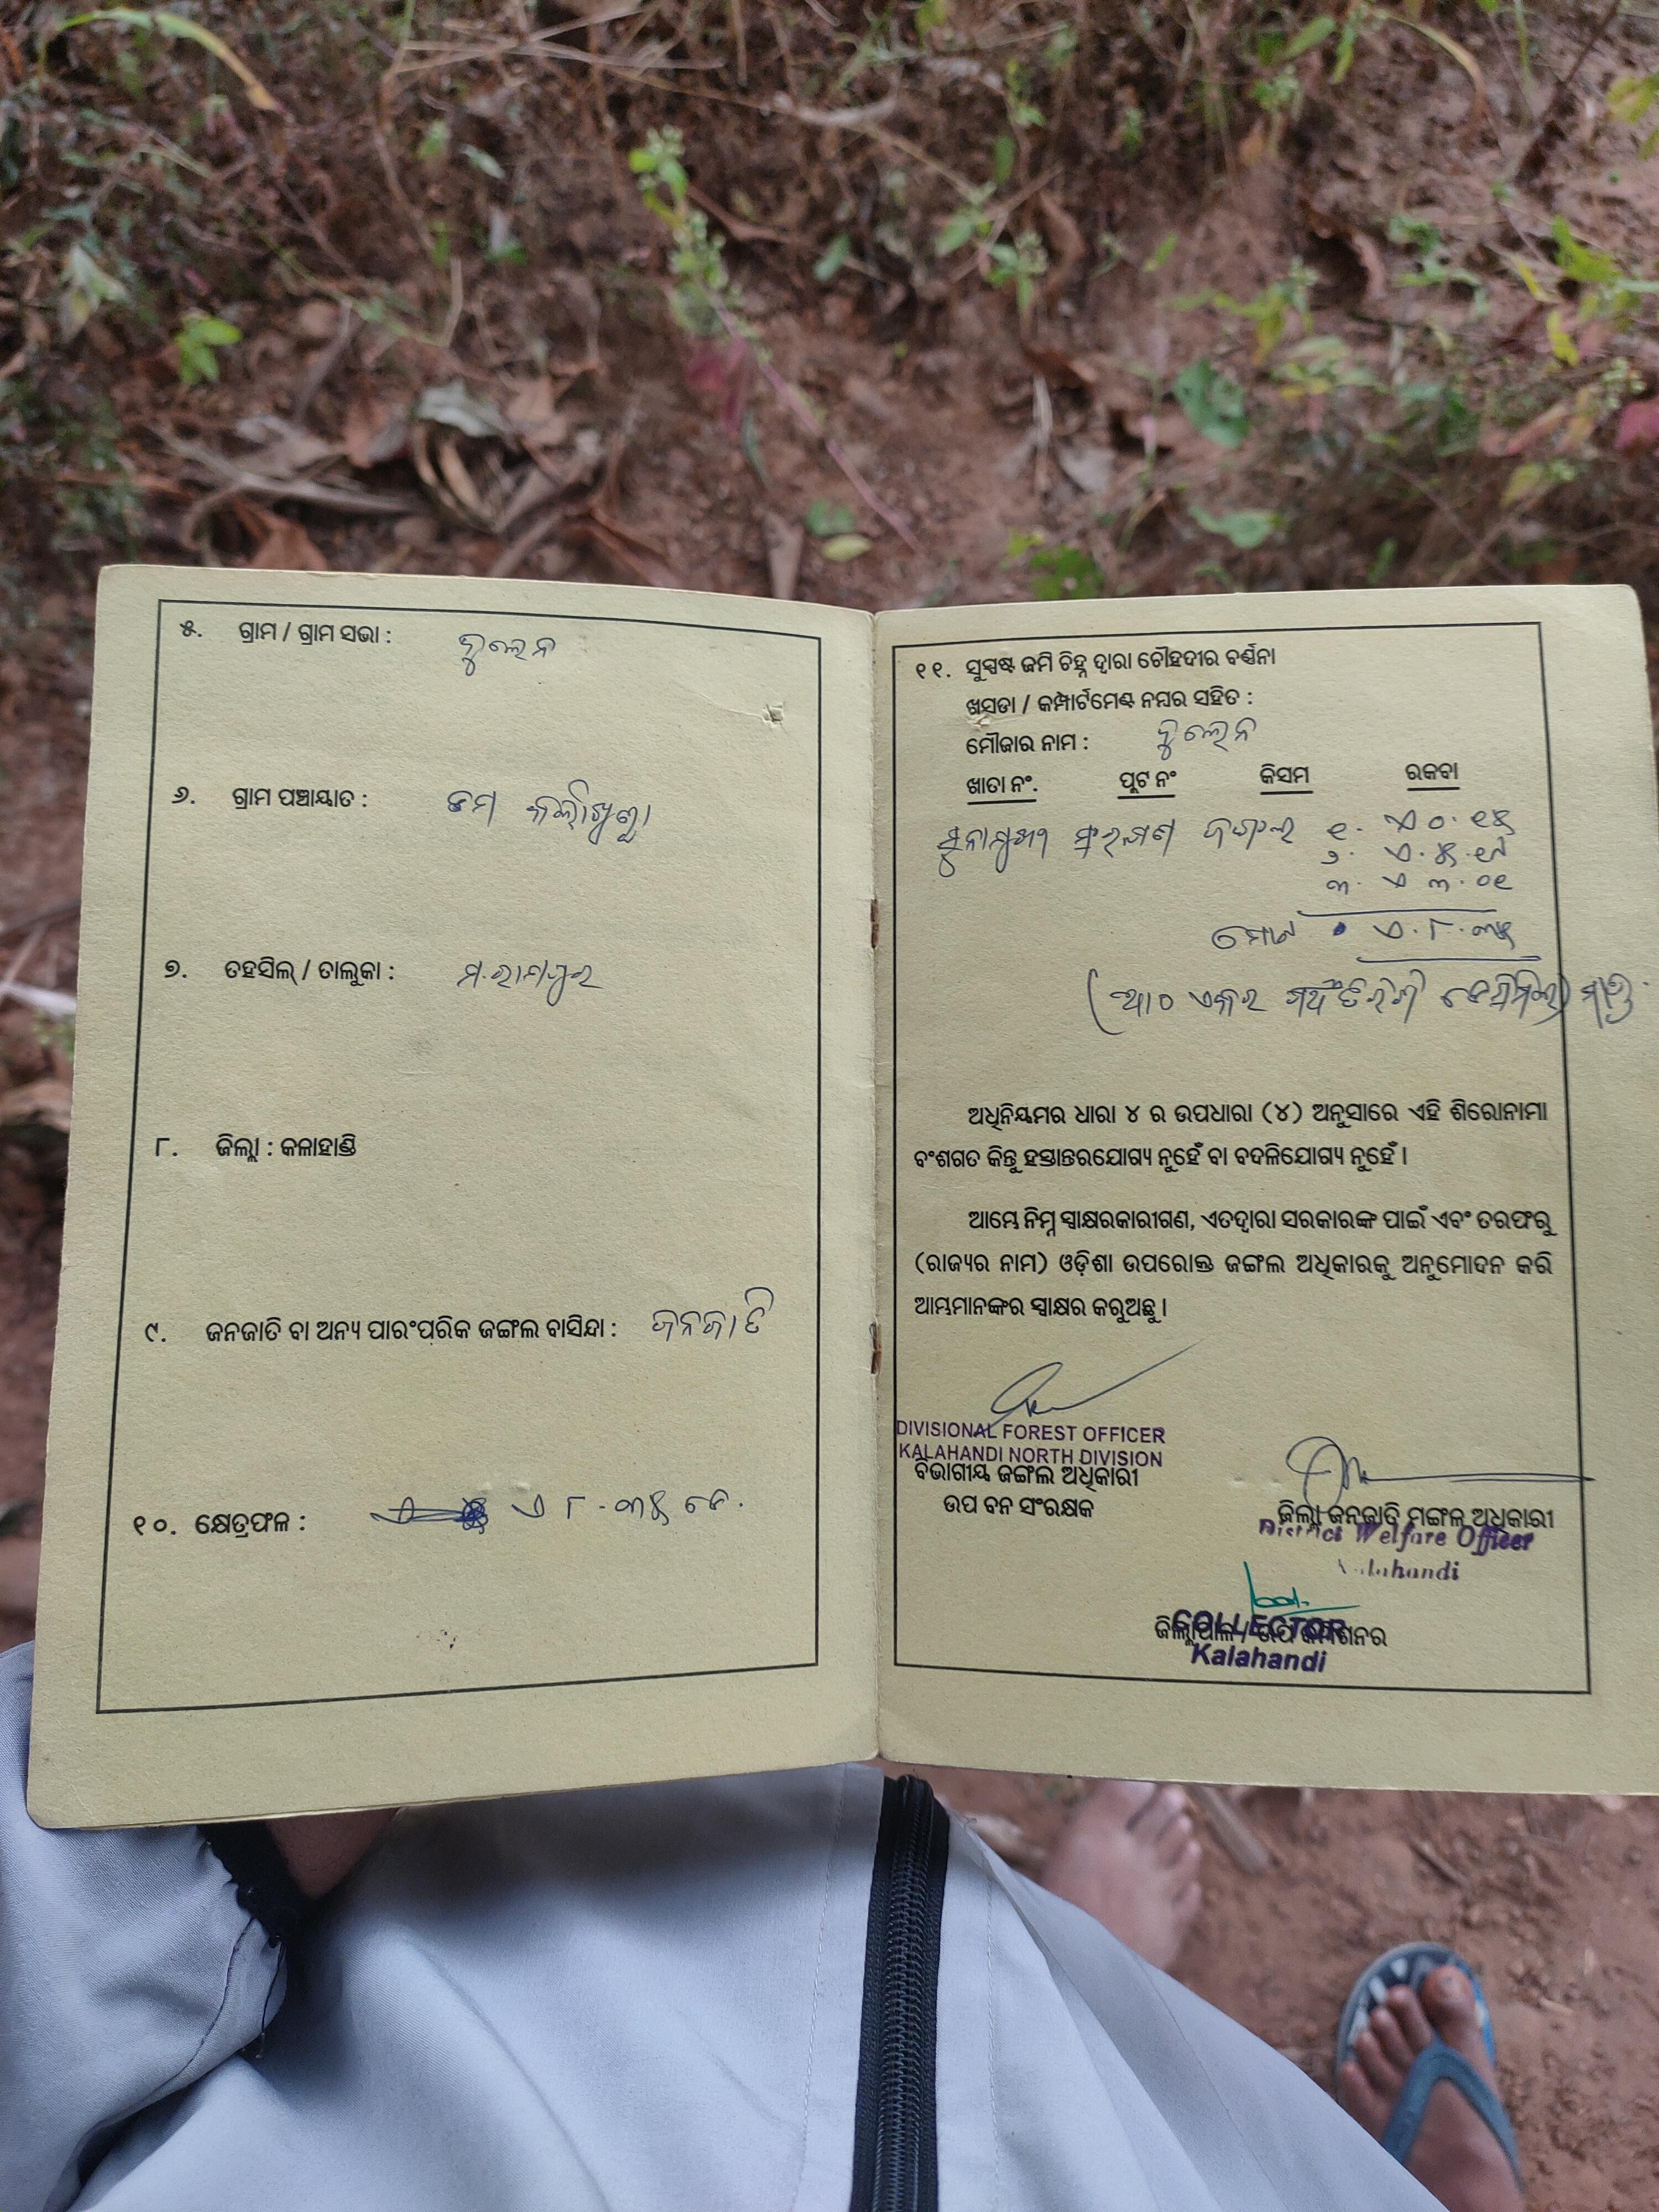 ୫. ଗ୍ରାମ / ଗ୍ରାମ ସଭା : ଦୁଲେନ
୬. ଗ୍ରାମ ପଞ୍ଚାୟାତ :
୭. ତହସିଲ୍ / ତାଲୁକା : ମ.ରାମପୁର
୮. ଜିଲ୍ଲା : କଳାହାଣ୍ଡି
୯. ଜନଜାତି ବା ଅନ୍ୟ ପାରଂପରିକ ଜଙ୍ଗଲ ବାସିନ୍ଦା : ଜନଜାତି
୧୦. କ୍ଷେତ୍ରଫଳ : ଏ ୮.୩୫ ଡେ.
୧୧. ସୁସ୍ପଷ୍ଟ ଜମି ଚିହ୍ନ ଦ୍ୱାରା ଚୌହଦୀର ବର୍ଣ୍ଣନା
ଖସଡା / କମ୍ପାର୍ଟମେଣ୍ଟ ନମ୍ବର ସହିତ :
ମୌଜାର ନାମ : ଦୁଲେନ
ଖାତା ନଂ. ପ୍ଲଟ ନଂ କିସମ ରକବା
ସୁନାମୁଖୀ ସଂରକ୍ଷଣ ଜଙ୍ଗଲ ୧. ଏ ୦.୧୫
୨. ଏ.୫.୧୯
୩. ଏ ୩.୦୧
ମୋଟ ଏ.୮.୩୫
(ଆଠ ଏକର ପଇଁତିରିଶି ଡେସିମିଲ) ମାତ୍ର
ଅଧିନିୟମର ଧାରା ୪ ର ଉପଧାରା (୪) ଅନୁସାରେ ଏହି ଶିରୋନାମା
ବଂଶଗତ କିନ୍ତୁ ହସ୍ତାନ୍ତରଯୋଗ୍ୟ ନୁହେଁ ବା ବଦଳିଯୋଗ୍ୟ ନୁହେଁ ।
ଆମ୍ଭେ ନିମ୍ନ ସ୍ୱାକ୍ଷରକାରୀଗଣ, ଏତଦ୍ୱାରା ସରକାରଙ୍କ ପାଇଁ ଏବଂ ତରଫରୁ
(ରାଜ୍ୟର ନାମ) ଓଡ଼ିଶା ଉପରୋକ୍ତ ଜଙ୍ଗଲ ଅଧିକାରକୁ ଅନୁମୋଦନ କରି
ଆମ୍ଭମାନଙ୍କର ସ୍ୱାକ୍ଷର କରୁଅଛୁ ।
DIVISIONAL FOREST OFFICER
KALAHANDI NORTH DIVISION
ବିଭାଗୀୟ ଜଙ୍ଗଲ ଅଧିକାରୀ
ଉପ ବନ ସଂରକ୍ଷକ
ଜିଲ୍ଲା ଜନଜାତି ମଙ୍ଗଳ ଅଧିକାରୀ
District Welfare Officer
Kalahandi
COLLECTOR
ଜିଲ୍ଲାପାଳ / ଉପ କମିଶନର
Kalahandi